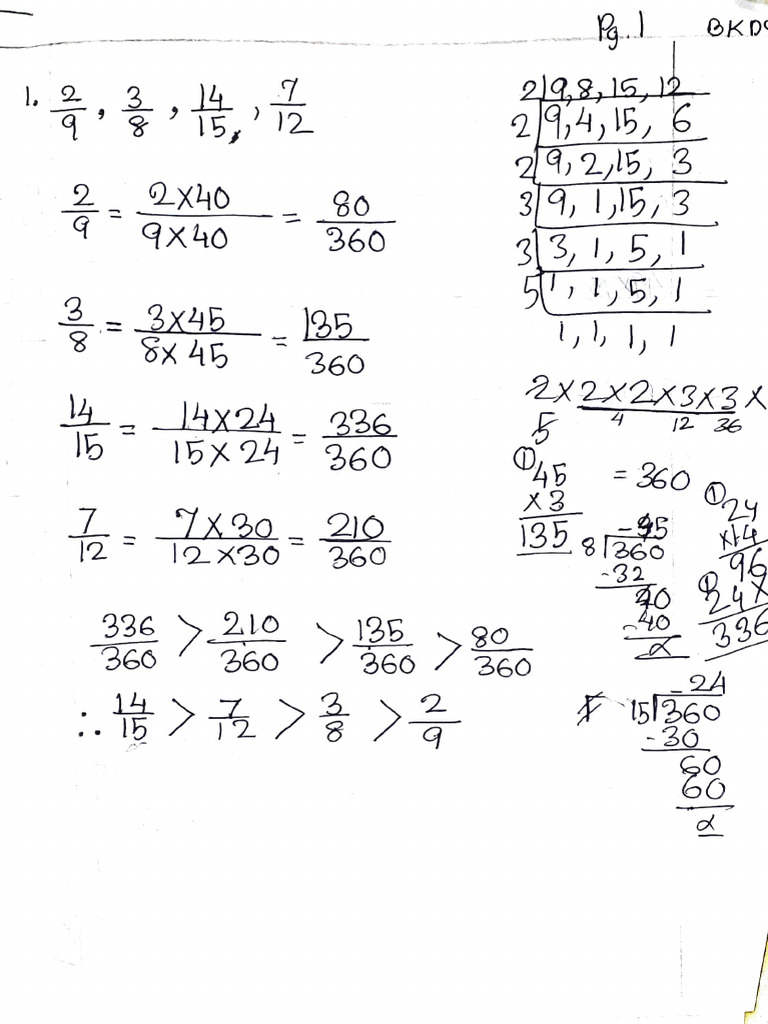 Pg. 1
1. 2/9, 3/8, 14/15, 7/12
2/9 = 2×40/9×40 = 80/360
3/8 = 3×45/8×45 = 135/360
14/15 = 14×24/15×24 = 336/360
7/12 = 7×30/12×30 = 210/360
336/360 > 210/360 > 135/360 > 80/360
∴ 14/15 > 7/12 > 3/8 > 2/9
2|9, 8, 15, 12
2|9, 4, 15, 6
2|9, 2, 15, 3
3|9, 1, 15, 3
3|3, 1, 5, 1
5|1, 1, 5, 1
1, 1, 1, 1
2×2×2×3×3×
4 12 36
5
= 360
① 45
×3
135
45
8|360
-32
40
-40
① 24
×14
96
24×
336
24
15|360
-30
60
60